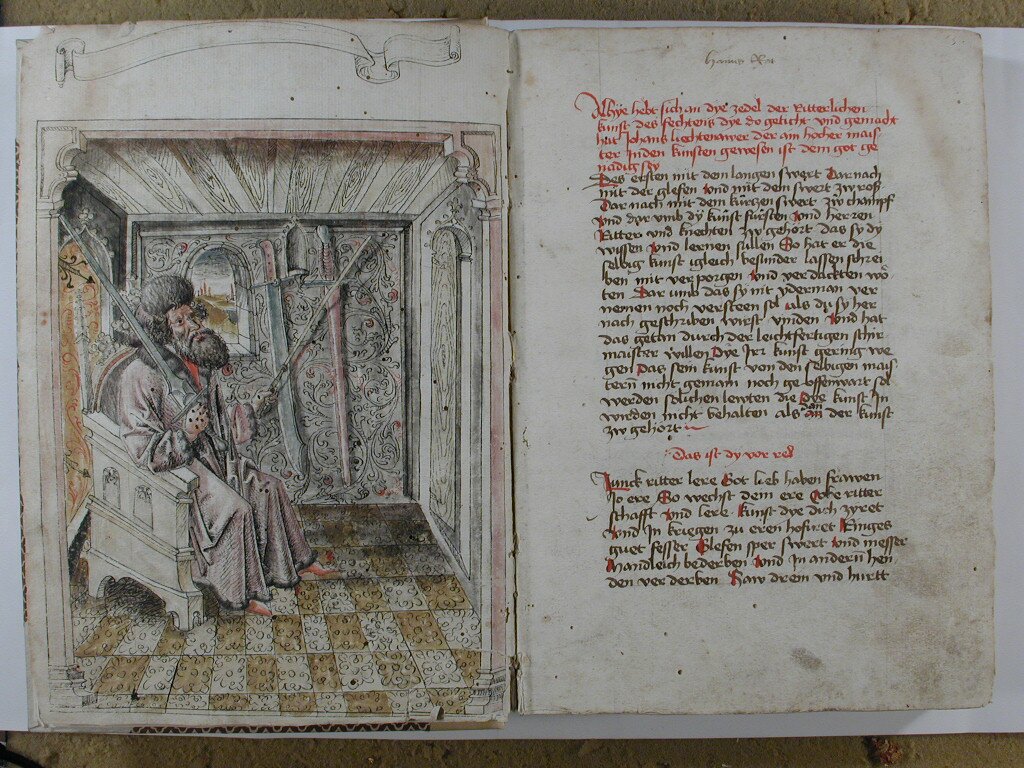 Alhÿe hebt sich an dye zedel der Ritterlichen
kunst des fechtens dye do geticht vnd gemacht
hat Johans Liechtenawer der ain hocher mais
ter Inden künsten gewesen ist dem got ge
nadig seÿ
Des ersten mit dem langen swert Dar nach
mit der glefen vnd mit dem swert zw roß
Dar nach mit dem kurczen swert zw champf
Vnd dar vmb dÿ kunst fürsten vnd herren
Ritter vnd knechten zw gehört das sy dÿ
wissen vnd lernen sullen So hat er die
selbig kunst igleich besunder lassen schrei
ben mit verporgen vnd verdackten wö
ten Dar umb das sy mit yderman ver
nemen noch versteen sol als du sy her
nach geschriben wirst vinden Vnd hat
das getan durch der leichfertigen schir
maister willen Dye Irϟ kunst gering we
gen Das sein kunst von den selbigen mais
tern nicht gemain noch geoffenwart sol
werden solichen lewten die Dye kunst In
wirden nicht behalten als dan der kunst
zw gehort
Das ist dÿ vor red
Junck ritter lere Got lieb haben frawen
Jo ere So wechst dein ere Vbe ritter
schafft vnd lere Kunst dye dich zyret
Vnd In kriegen zu eren hofiret Ringes
guet fesser Glefen sper swert vnd messer
Mandleich bederben Vnd In andern hen
den verderben Haw drein vnd hurtt